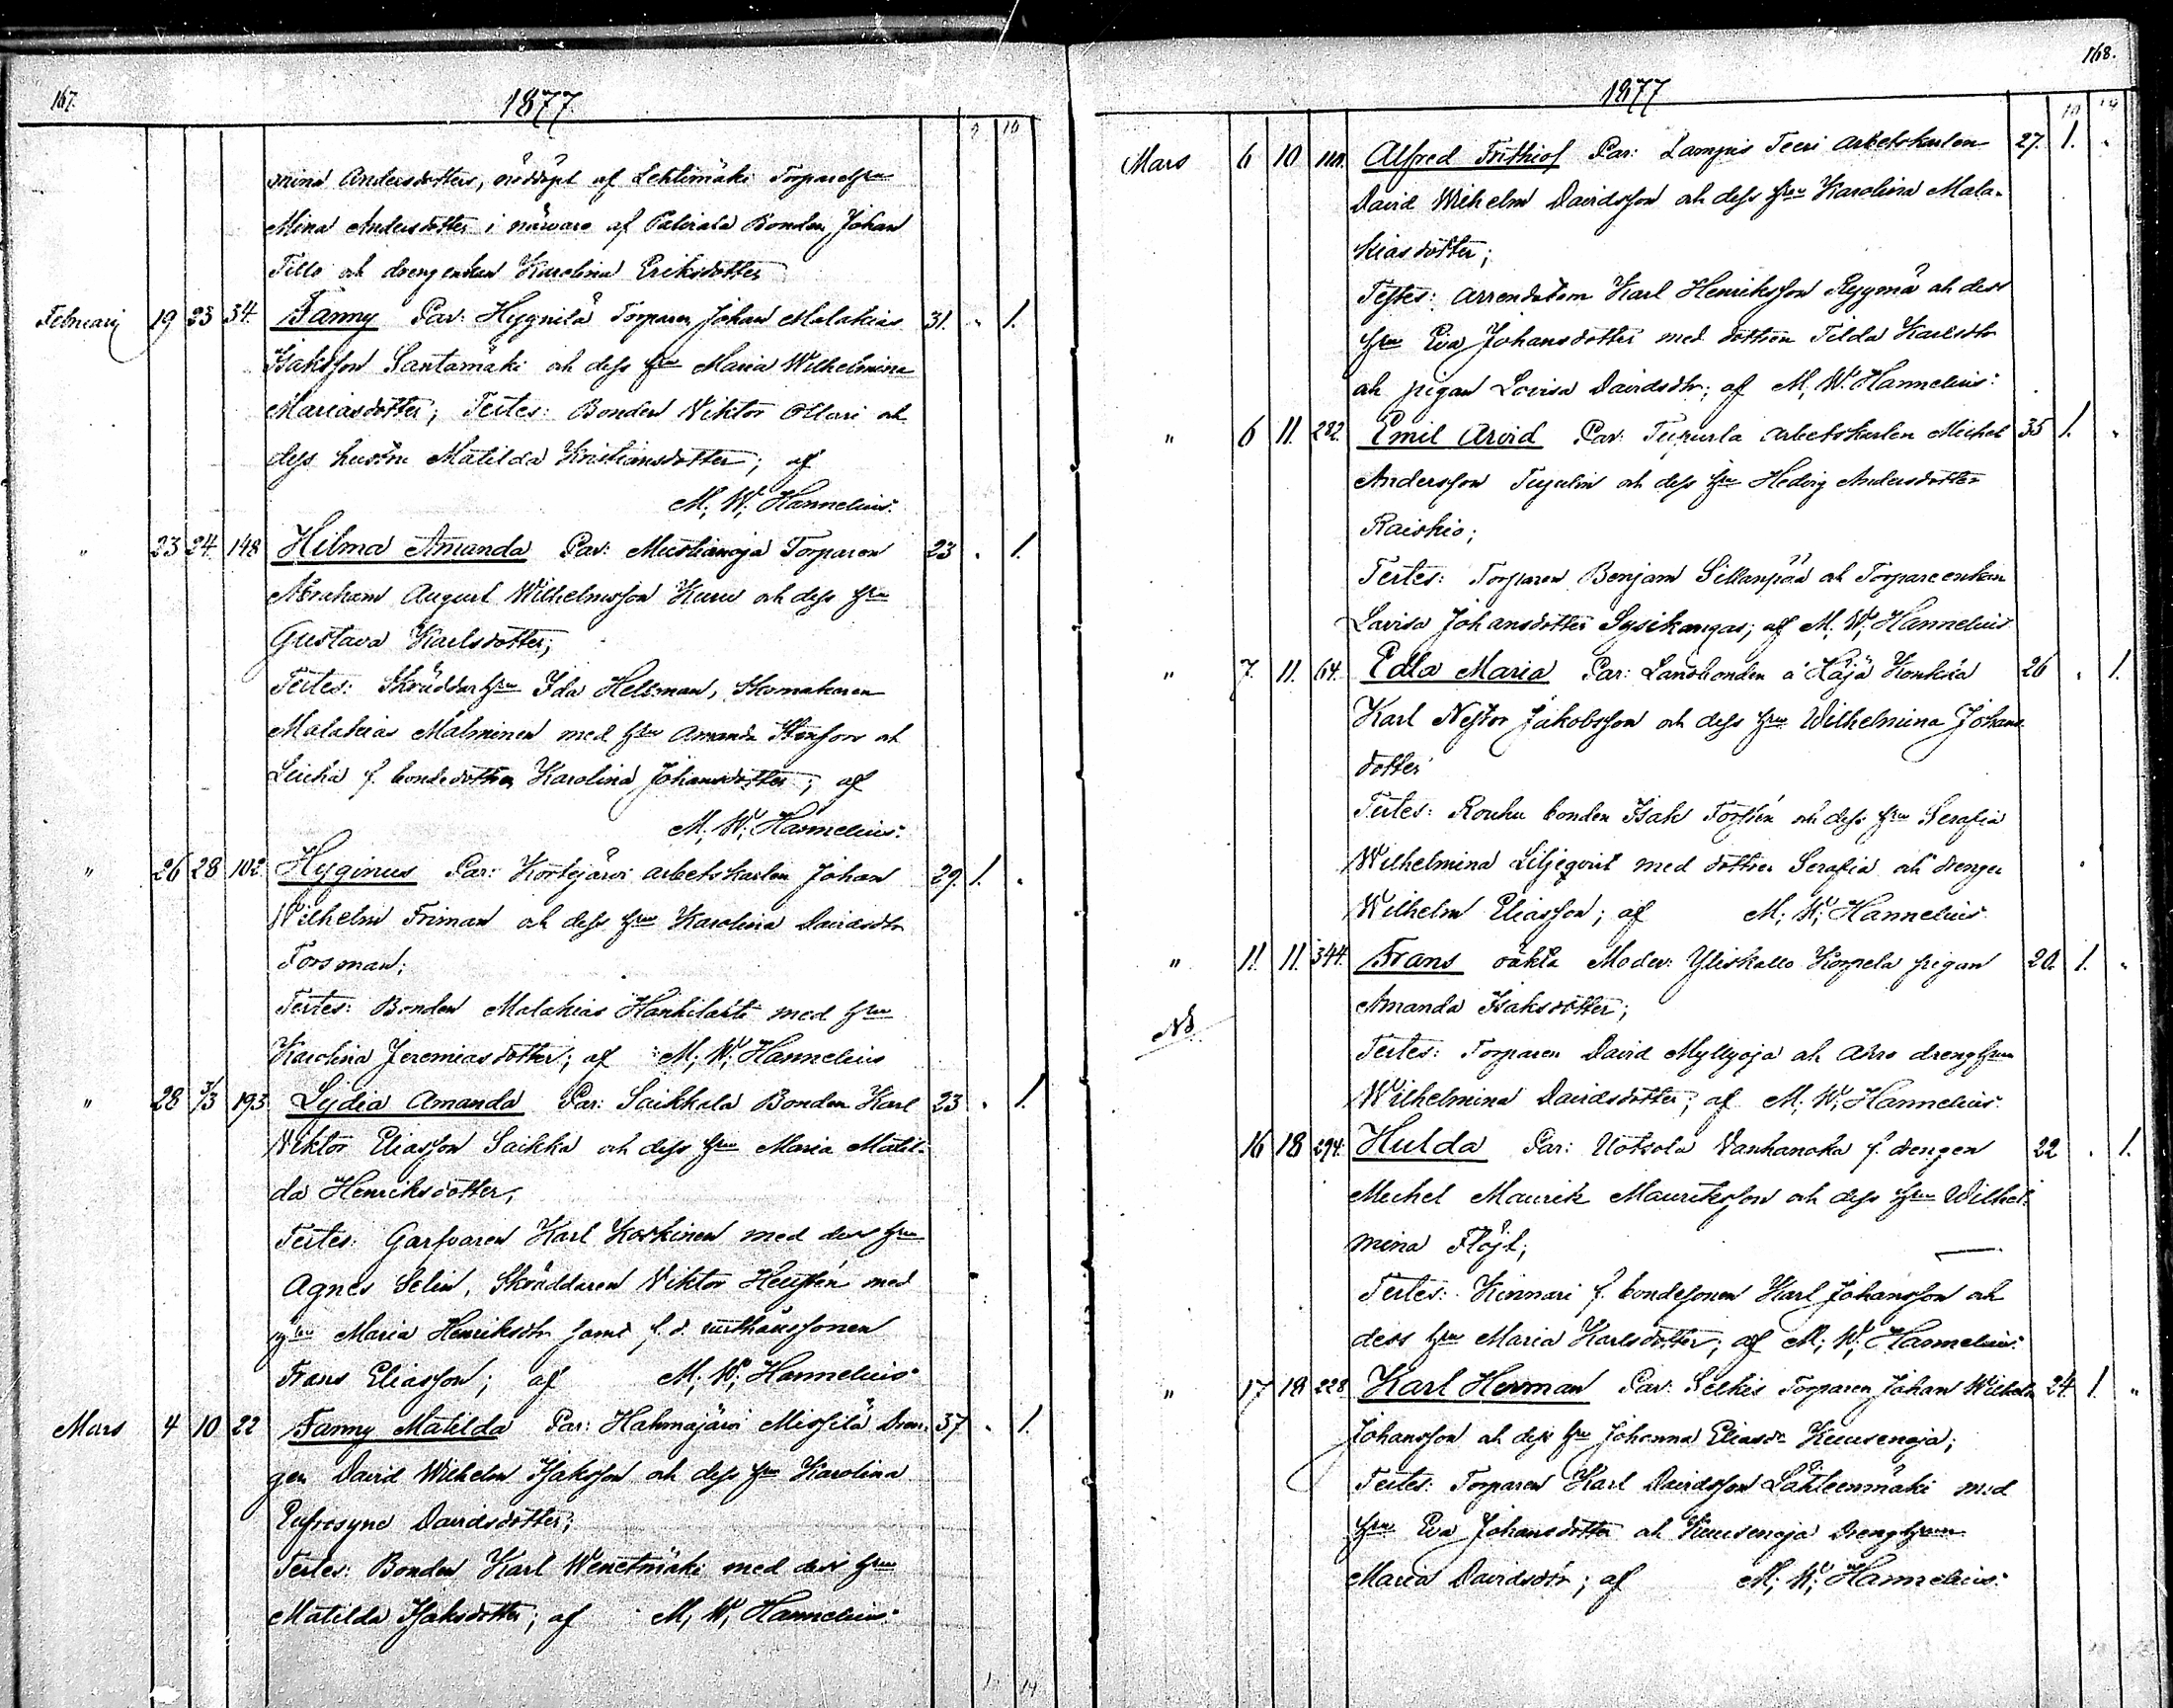 167.
1877.
9 10
mina Andersdotters, nöddöpt af Lehtimäki Torparehu
Mina Andersdotter i närvaro af Bonden Johan
Tillo och drengenkan Karolina Eriksdotter
Februarij 19 23 34. Fanny Par: Hygnilä Torparen Johan Malakias 31. " 1.
Isaksson Santamäki och dess hu Maria Wilhelmina
Mariasdotter; Testes: Bonden Viktor Ollari och
dess hustru Matilda Kristiansdotter; af
M. W. Hannelius.
" 23 24. 148 Hilma Amanda Par: Mustianoja Torparen 23 . 1.
Abraham August Wilhelmsson Kuru och dess hru
Gustava Karlsdotter;
Testes: Skräddarhru Ida Hellman, Skomakaren
Malakias Malminen med hru Amanda och
f. bondedottren Karolina Johansdotter; af
M. W. Hannelius.
" 26 28 102. Hyginus Par: Kortejärvi arbetskarlen Johan 29. 1. .
Wilhelm Friman och dess hru Karolina Davidsdr
Forsman;
Testes: Bonden Malakias Hankilahti med hru
Karolina Jeremiasdotter; af M. W. Hannelius
" 28 3/3 193 Lydia Amanda Par: Saikkala Bonden Karl 23 . 1.
Viktor Eliasson Saikka och dess hru Maria Matil-
da Henriksdotter,
Testes: Garfvaren Karl Koskinen med dess hru
Agnes Selin, Skräddaren Viktor Heurlén med
hru Maria Henriksdr samt f. d.
Frans Eliasson; af M. W. Hannelius
Mars 4 10 22 Fanny Matilda Par: Hahmajärvi Missilä Dren- 37 . 1.
gen David Wilhelm Isaksson och dess hru Karolina
Eufrosyne Davidsdotter;
Testes: Bonden Karl Wenetmäki med dess hru
Matilda Isaksdotter; af M. W. Hannelius.
168.
1877
Mars 6 10 Alfred Frithiof Par: Lampis Teeri arbetskarlen 27. 1. .
David Wilhelm Davidsson och dess hru Karolina Mala-
kiasdotter;
Testes: Arrendatorn Karl Henriksson och dess
hru Eva Johansdotter med dottren Tilda Karlsdr
och pigan Lovisa Davidsdr; af M. W. Hannelius.
" 6 11. 282. Emil Arvid Par: Tupurla Arbetskarlen Michel 35 1. .
Andersson och dess hru Hedvig Andersdotter
Raiskio;
Testes: Torparen Benjam Sillanpää och Torpareenkan
Lovisa Johansdotter Sysikangas; af M. W. Hannelius
" 7. 11. 64. Edla Maria Par: Landbonden å Häjä Konkkä 26 . 1.
Karl Nestor Jakobsson och dess hru Wilhelmina Johans
dotter
Testes: Rouhu bonden Isak Forstén och dess hru Serafia
Wilhelmina Liljeqvist med dottren Serafia och drengen
Wilhelm Eliasson; af M. W. Hannelius.
" 11. 11. 344. Frans oäkta Moder: Yliskallo Korpela pigan 20. 1. .
Amanda Isaksdotter;
Nb
Testes: Torparen David Myllyoja och Arro drenghrun
Wilhelmina Davidsdotter; af M. W. Hannelius.
16 18 294. Hulda Par: Uotsola Vanhanoka f. drengen 22 . 1.
Michel Maurik Mauriksson och dess hru Wilhel-
mina Flöjt;
Testes: Kinnari f. bondesonen Karl Johansson och
dess hru Maria Karlsdotter; af M. W. Hannelius.
" 17 18 228 Karl Herman Par: Seikis Torparen Johan Wilhelm 24. 1. "
Johansson och dess hru Johanna Eliasdr Kuusenoja;
Testes: Torparen Karl Davidsson Lähteenmäki med
hru Eva Johansdotter och Kuusenoja Drenghrun
Maria Davidsdtr; af M. W. Hannelius.